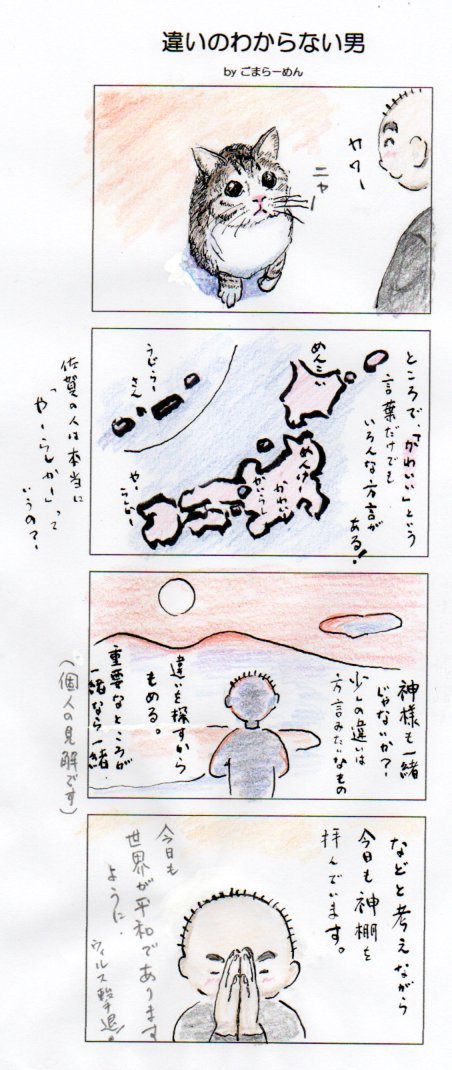 違いのわからない男
by ごまらーめん
ニャー
ところで、「かわいい」という
言葉だけでも
いろんな方言が
ある!
めんこい
めんけー
かわいい
うじらー
さん
佐賀の人は本当に
「やーらしかー」って
いうの?
神様も一緒
じゃないか?
少しの違いは
方言みたいなもの
違いを探すから
もめる。
重要なところが
一緒なら一緒
(個人の見解です)
などと考えながら
今日も神棚を
拝んでいます。
今日も
世界が平和であります
ように。
ウィルス撃退!!